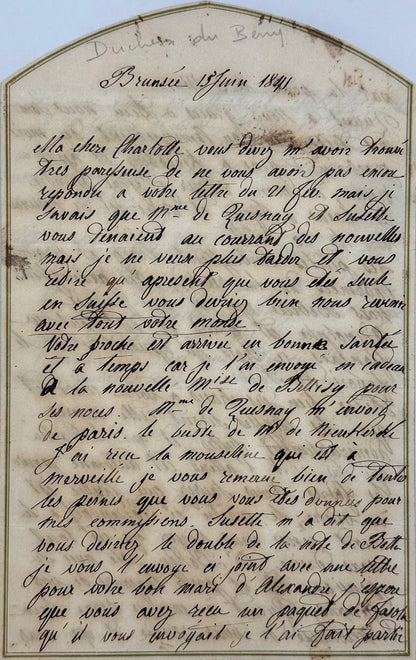 Duchesse du Berry
Brunsée 15 Juin 1841
Ma chere Charlotte vous devez m'avoir trouvé
tres paresseuse de ne vous avoir pas encor
repondu a votre lettre du 21 fev. mais je
savais que Mme de Quesnay et Susette
vous tenaient au courrant des nouvelles
mais je ne veux plus tarder et vous
redire qu'apresent que vous etes seule
en Suisse vous devriez bien nous revenir
avec tout votre monde
votre broche est arrivée en bonne santée
et a temps car je l'ai envoyé en cadeau
a la nouvelle Mise de pour
ses noces. Mme de Quesnay m'envoit
de paris le buste de Mr de
j'ai recu la mouseline qui est a
merveille je vous remercie bien de toutes
les peines que vous vous etes données pour
mes commissions. Susette m'a dit que
vous desiriez le double de la note de
je vous l'envoye ci joint avec une lettre
pour votre bon mari d'Alexandre j'espere
que vous avez recu un paquet de
qu'il vous envoyait je l'ai fait partir